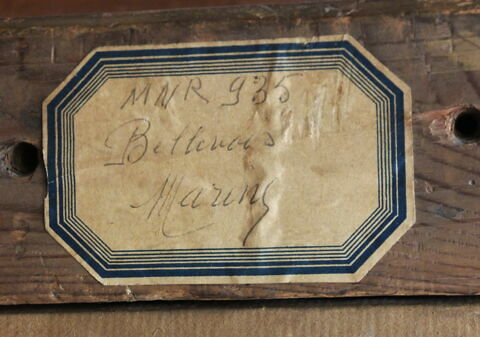 MNR 935
Bellevois
Marine